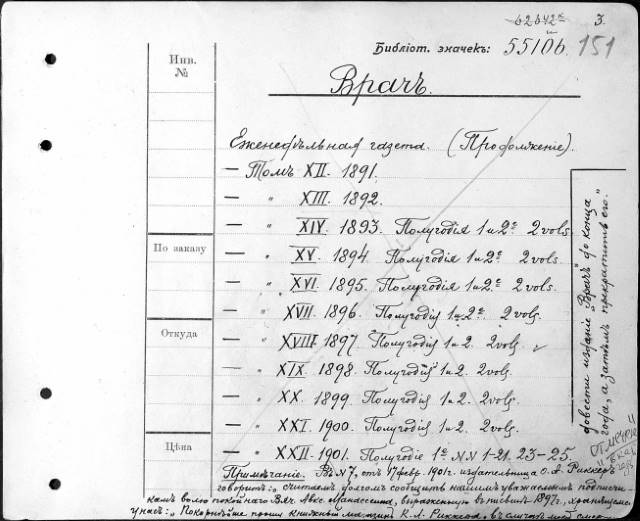 62642ᵉ 3.
Инв. №
Библіот. значекъ: 5510б. 151
Врачъ.
Еженедѣльная газета. (Продолженіе).
— Томъ XII. 1891.
— " XIII. 1892.
— " XIV. 1893. Полугодія 1 и 2ᵉ. 2 vols.
По заказу
— " XV. 1894. Полугодія 1 и 2ᵉ. 2 vols.
— " XVI. 1895. Полугодія 1 и 2ᵉ. 2 vols.
— " XVII. 1896. Полугодія 1 и 2ᵉ. 2 vols.
Откуда
— " XVIII. 1897. Полугодія 1 и 2. 2 vols.
— " XIX. 1898. Полугодія 1 и 2. 2 vols.
— " XX. 1899. Полугодія 1 и 2. 2 vols.
— " XXI. 1900. Полугодія 1 и 2. 2 vols.
Цѣна
— " XXII. 1901. Полугодіе 1ᵉ. №№ 1-21. 23-25.
довести изданіе "Врачъ" до конца
года, а затѣмъ прекратить его."
Примѣчаніе. Въ № 7, отъ 17 февр. 1901 г. издательница О. А. Риккеръ
говоритъ: „считаемъ долгомъ сообщить нашимъ уважаемымъ подписчи-
камъ волю покойнаго Вяч. Авкс. Манассеина, выраженную въ письмѣ 1897 г., хранящемся
у насъ: „Покорнѣйше прошу книжный магазинъ К. Л. Риккера, въ случаѣ моей смерти